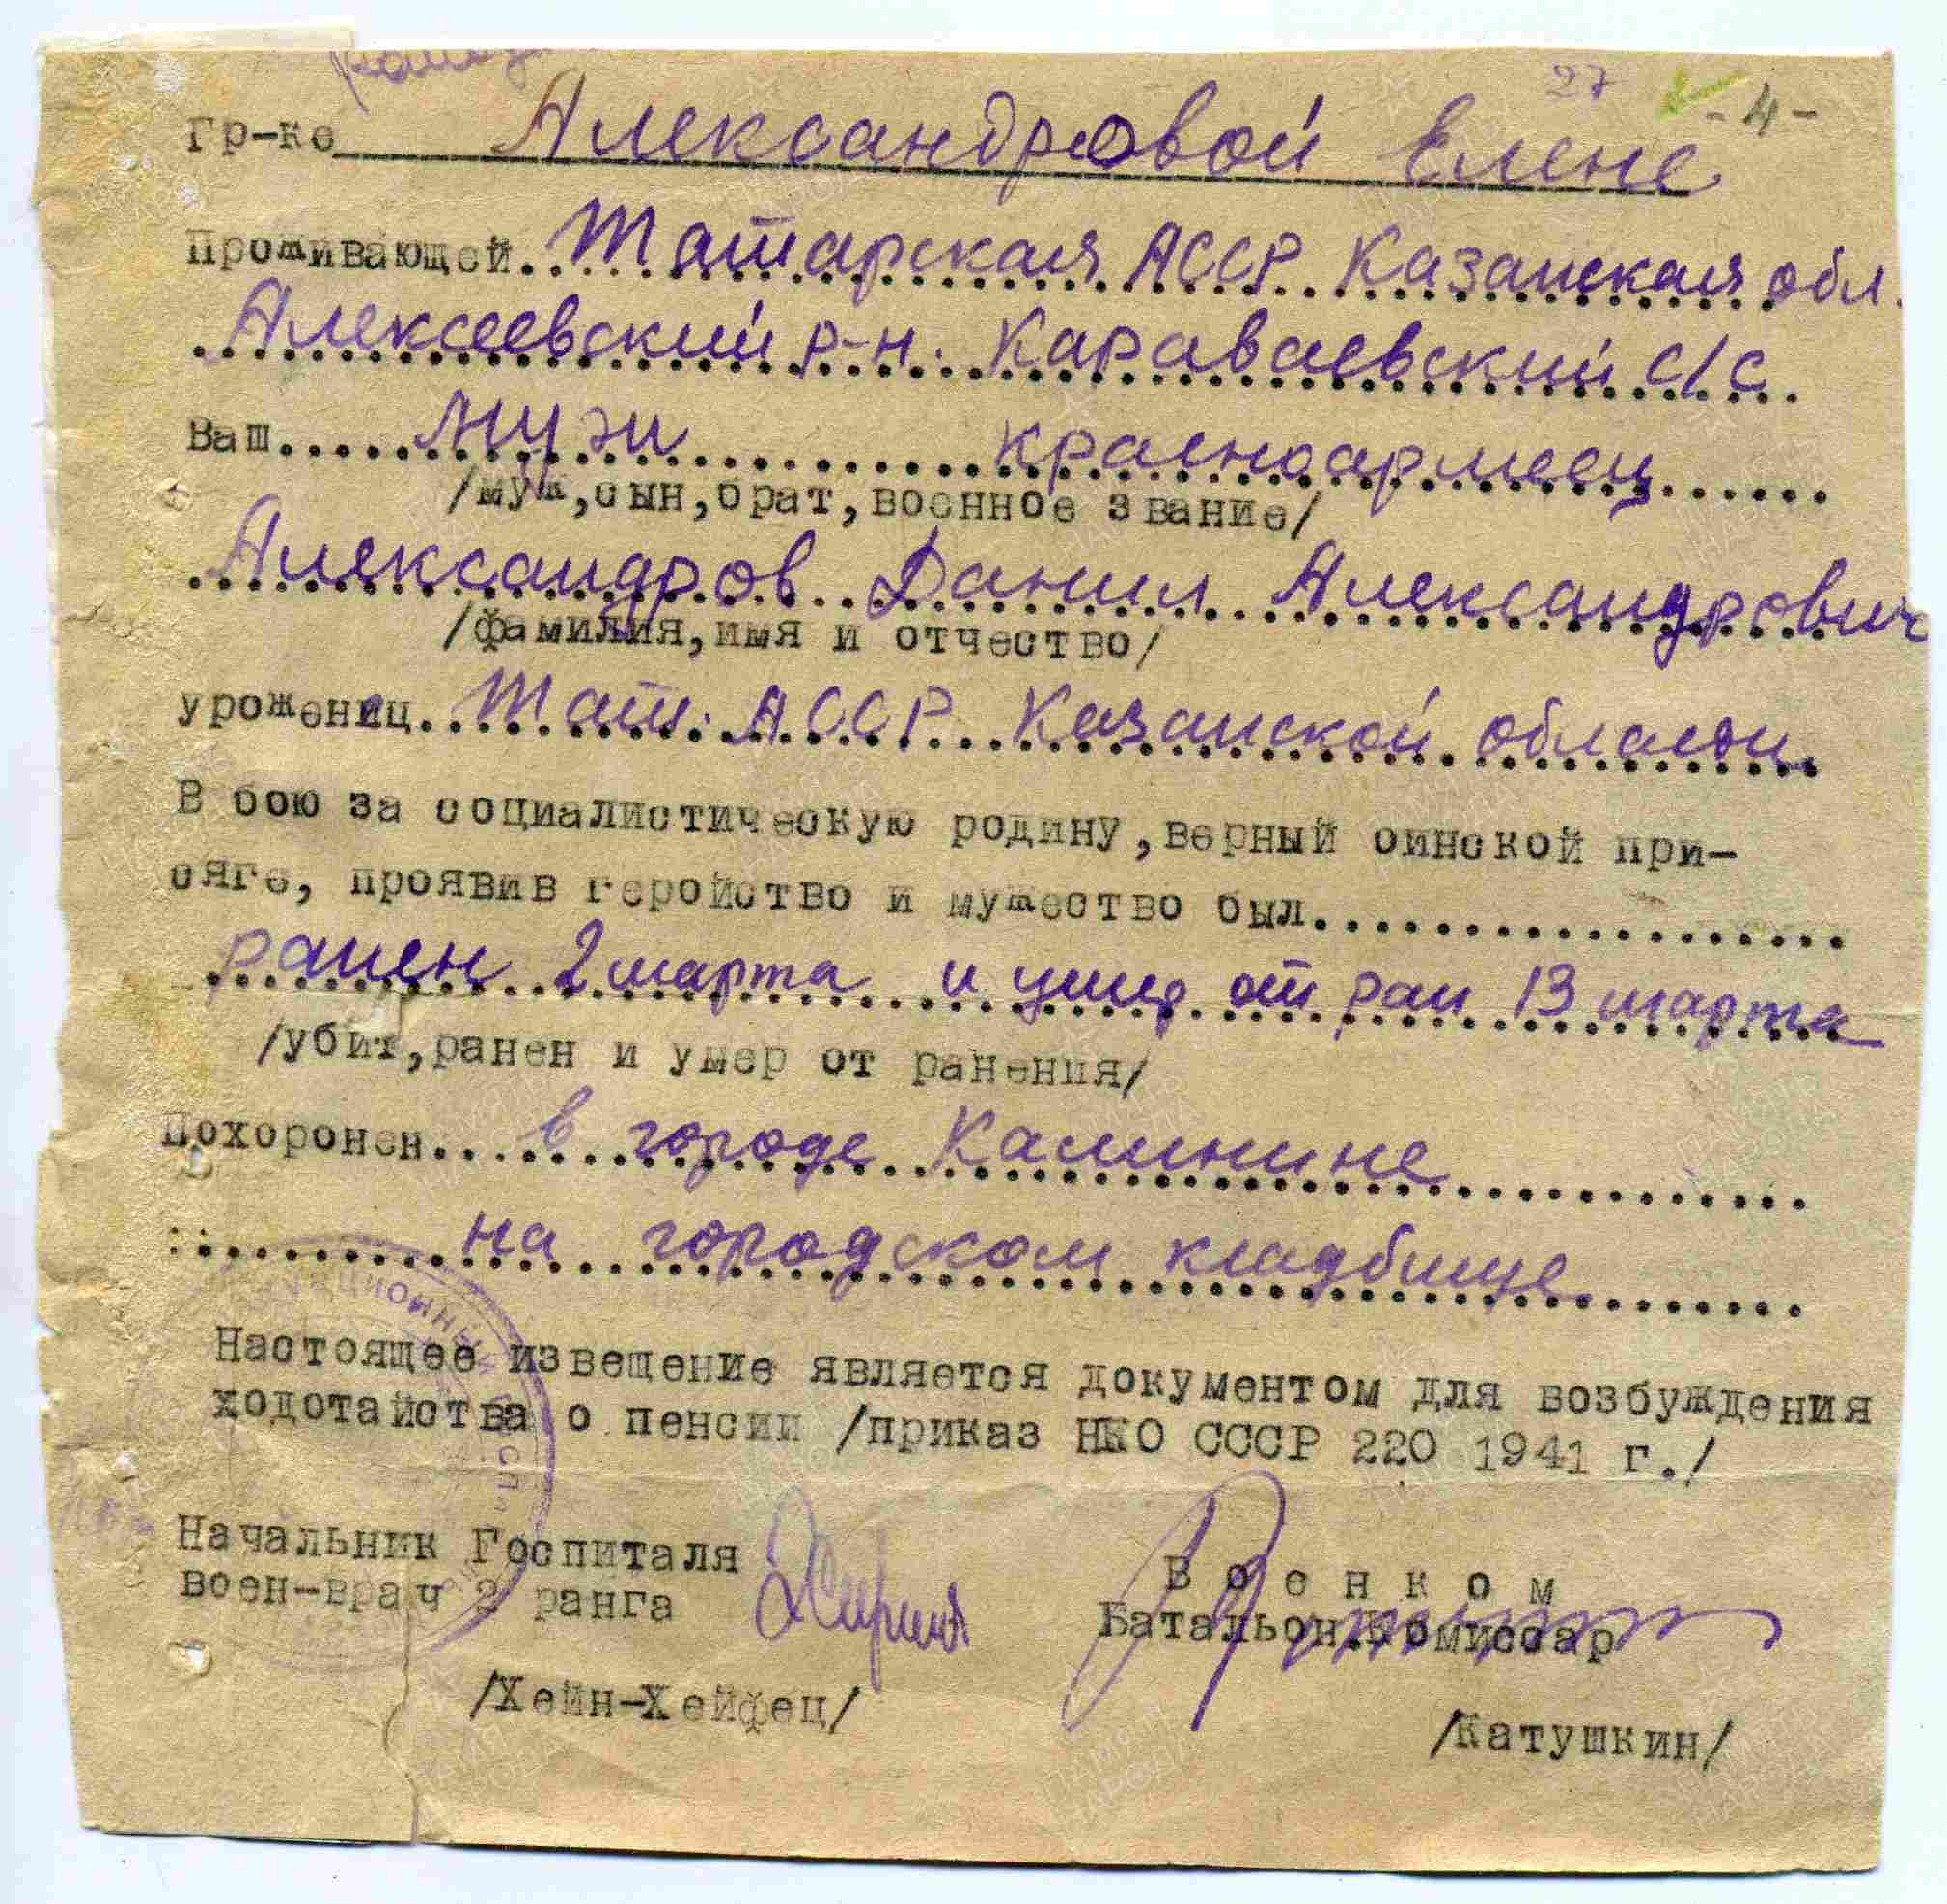 27 - 4 -
Гр-ке Александровой Елене
Проживающей..Татарская АССР Казанская обл.
Алексеевский р-н. Караваевский с/с.
Ваш..... муж красноармеец......
/муж,сын,брат,военное звание/
Александров Данил Александрович
/фамилия,имя и отчество/
уроженец..Тат. АССР Казанской области
В бою за социалистическую родину,верный оинской при-
сяге, проявив геройство и мужество был...................
ранен 2 марта и умер от ран 13 марта
/убит,ранен и умер от ранения/
Похоронен.... в городе Калинине
на городском кладбище
Настоящее извещение является документом для возбуждения
ходотайства о пенсии /приказ НКО СССР 220 1941 г./
Начальник Госпиталя
воен-врач 2 ранга
В о е н к о м
Батальон.Комиссар
/Хейн-Хейфец/
/Катушкин/